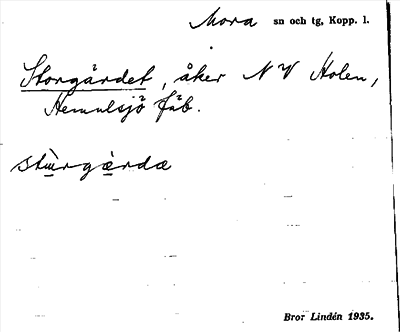 Mora sn och tg, Kopp. l.
Storgärdet, åker N V Holen,
Hemulsjö fäb.
stùrgæ̀rdæ
Bror Lindén 1935.